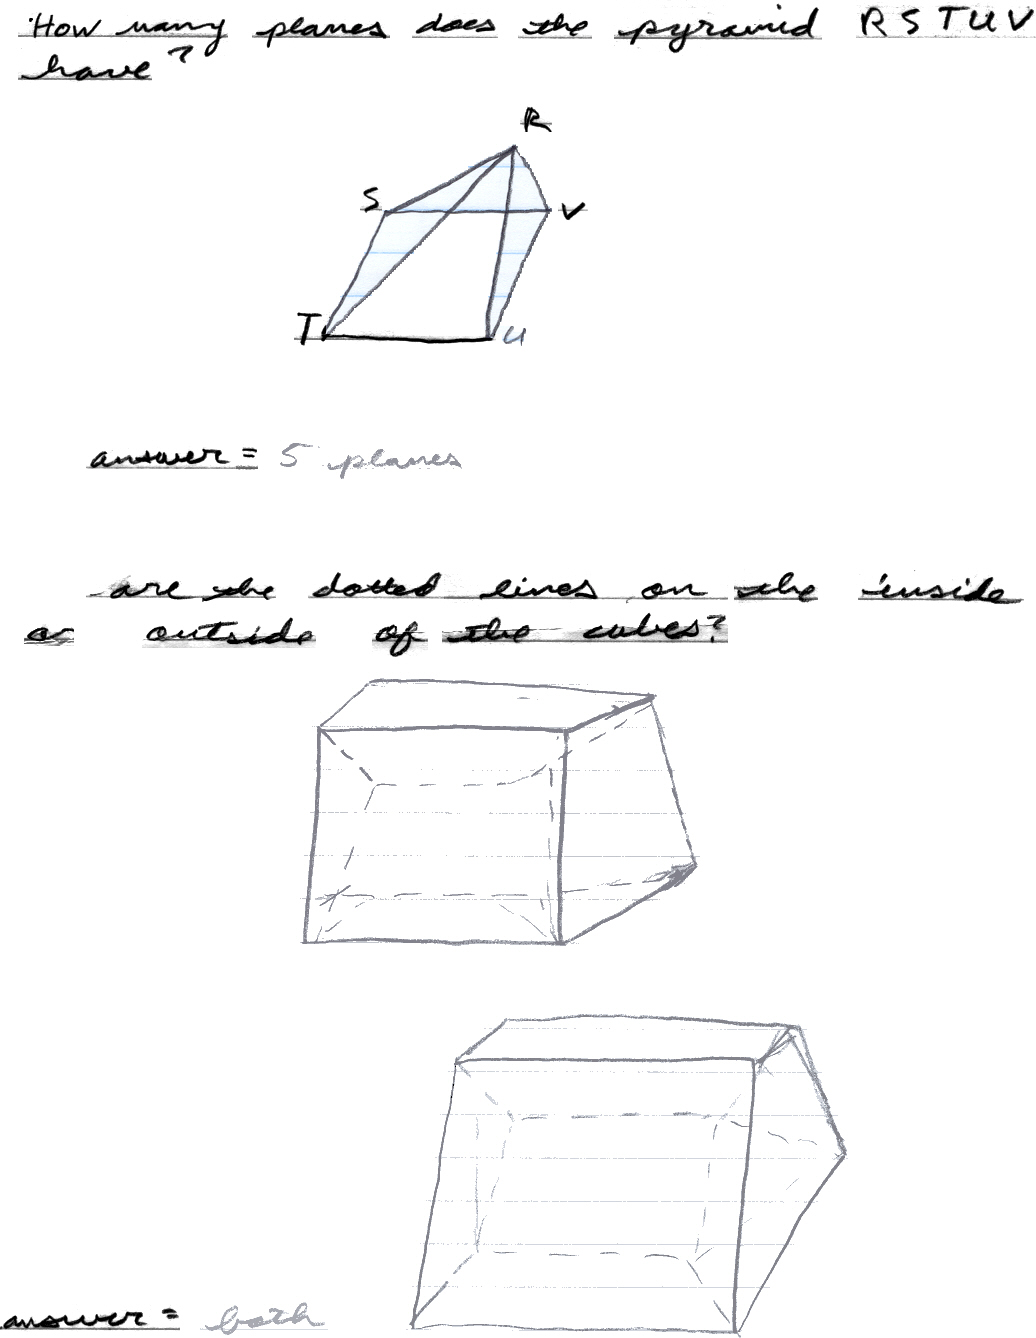 How many planes does the pyramid R S T U V
have?
R
S
V
T
U
answer = 5 planes
are the dotted lines on the inside
or outside of the cubes?
answer = both